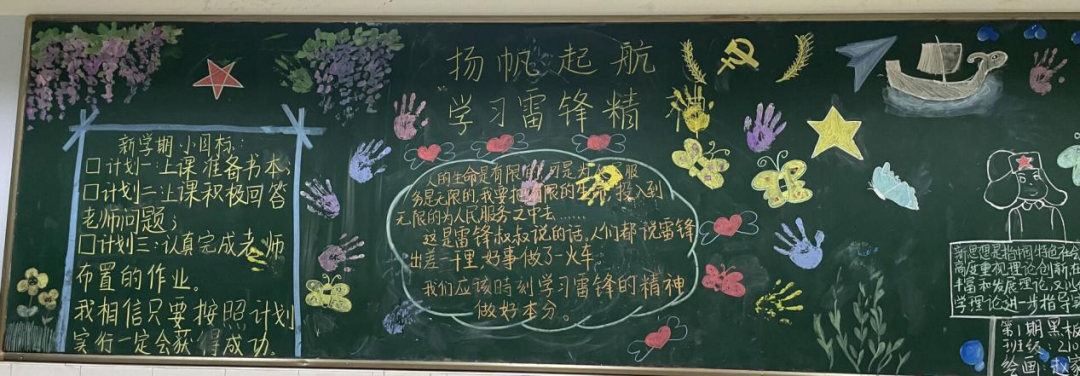 扬帆起航
学习雷锋精
新学期小目标:
口计划一:上课准备书本;
口计划二:上课积极回答
老师问题;
口计划三:认真完成老师
布置的作业。
我相信只要按照计划
实行一定会获得成功。
人的生命是有限的,可是为 服
务是无限的,我要把有限的生 投入到
无限的为人民服务之中去……
这是雷锋叔叔说的话,人们都说雷锋
出差一千里,好事做了一火车。
我们应该时刻学习雷锋的精神
做好本分。
新思想是指中国特色社会
高度重视理论创新在
丰富和发展理论,又以
学理论进一步指导
第1期黑板
班级:210
绘画:赵家